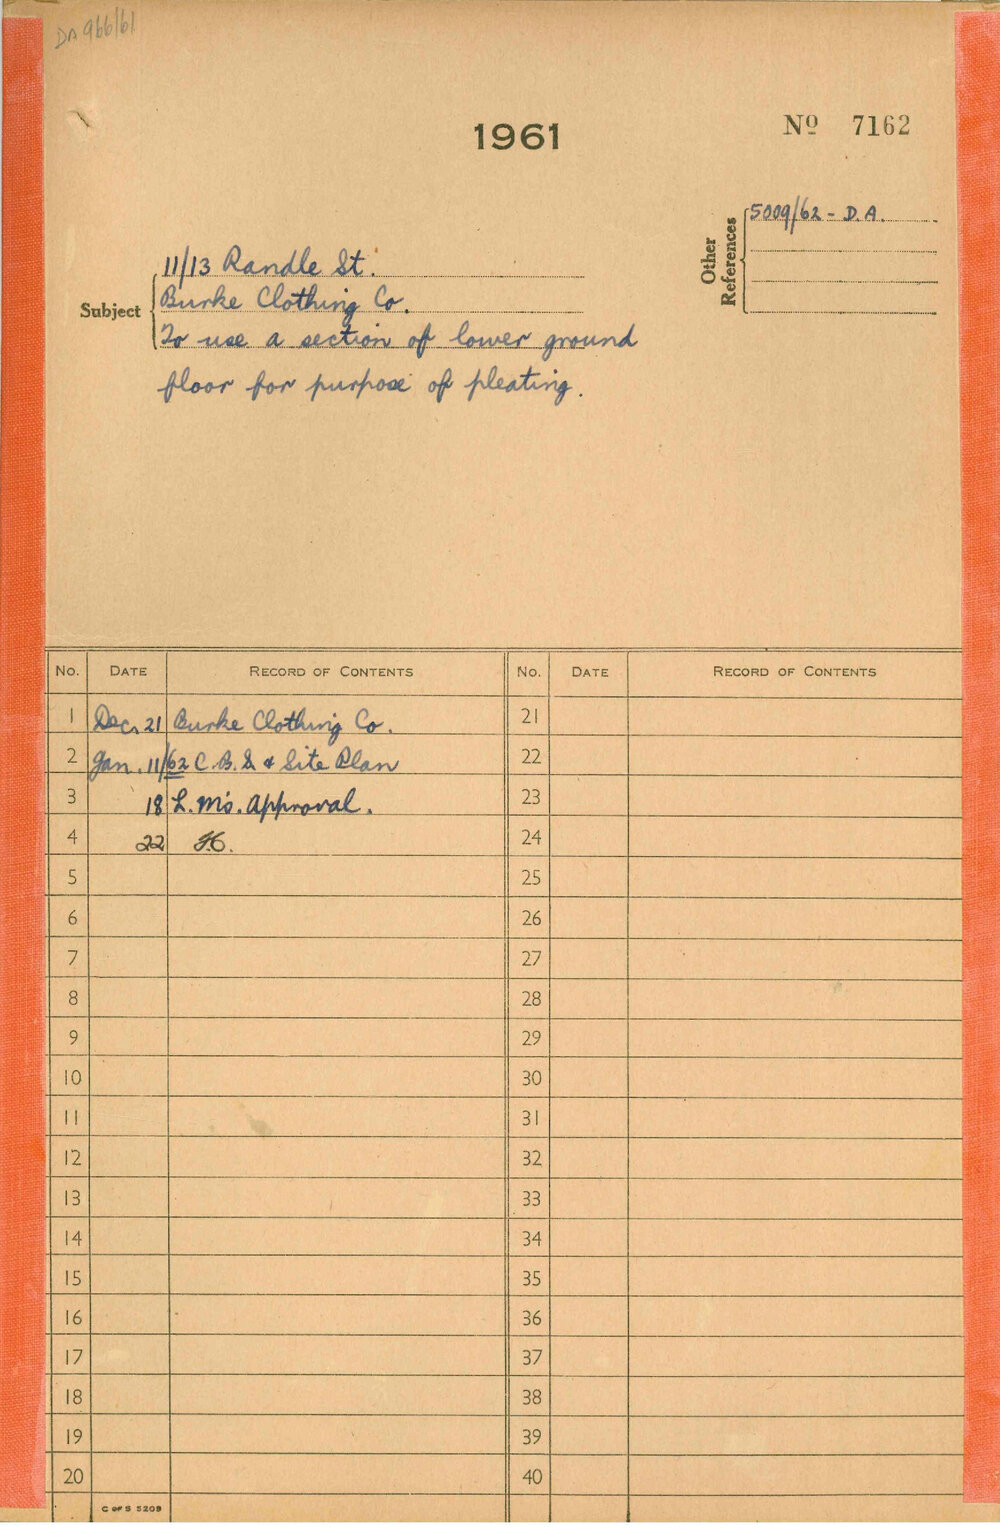 DA 966/61
1961
Nº 7162
Other References
5009/62 - D.A.
Subject
11/13 Randle St.
Burke Clothing Co.
To use a section of lower ground
floor for purpose of pleating.
No. DATE RECORD OF CONTENTS No. DATE RECORD OF CONTENTS
1 Dec. 21 Burke Clothing Co. 21
2 Jan. 11/62 C.B.S. & Site Plan 22
3 18 L.M's. Approval. 23
4 22 24
5 25
6 26
7 27
8 28
9 29
10 30
11 31
12 32
13 33
14 34
15 35
16 36
17 37
18 38
19 39
20 40
C OF S 5209